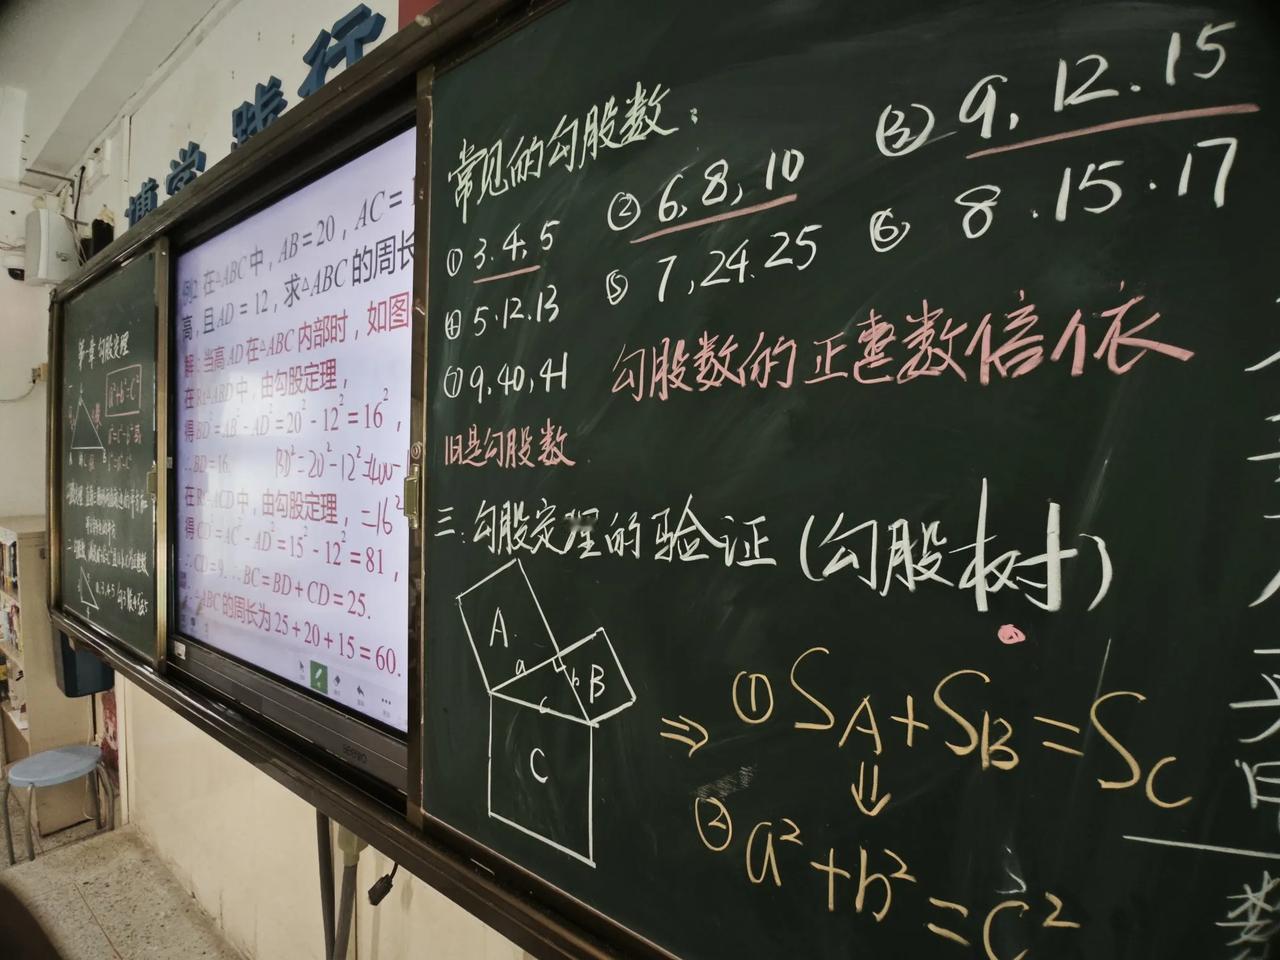 博学 践行
第一章 勾股定理
a²+b²=c²
例2 在△ABC中，AB=20，AC=1
高，且AD=12，求△ABC的周长
解：当高AD在△ABC内部时，如图
在Rt△ABD中，由勾股定理，
得BD²=AB²-AD²=20²-12²=16²，
∴BD=16. BD²=20²-12²=400-1
在Rt△ACD中，由勾股定理，=16²
得CD²=AC²-AD²=15²-12²=81，
∴CD=9.∴BC=BD+CD=25.
∴△ABC的周长为25+20+15=60.
seewo
常见的勾股数：
①3.4,5 ②6,8,10 ③9,12.15
④5.12.13 ⑤7,24.25 ⑥8.15.17
⑦9,40,41 勾股数的正整数倍依
旧是勾股数
三.勾股定理的验证(勾股树)
A
a
b B
c
C
⇒ ①SA+SB=SC
⇓
②a²+b²=c²
数